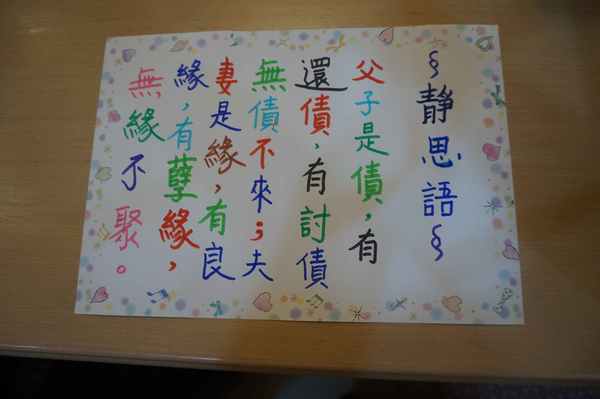 §靜思語§
父子是債，有
還債，有討債
無債不來；夫
妻是緣，有良
緣，有孽緣，
無緣不聚。